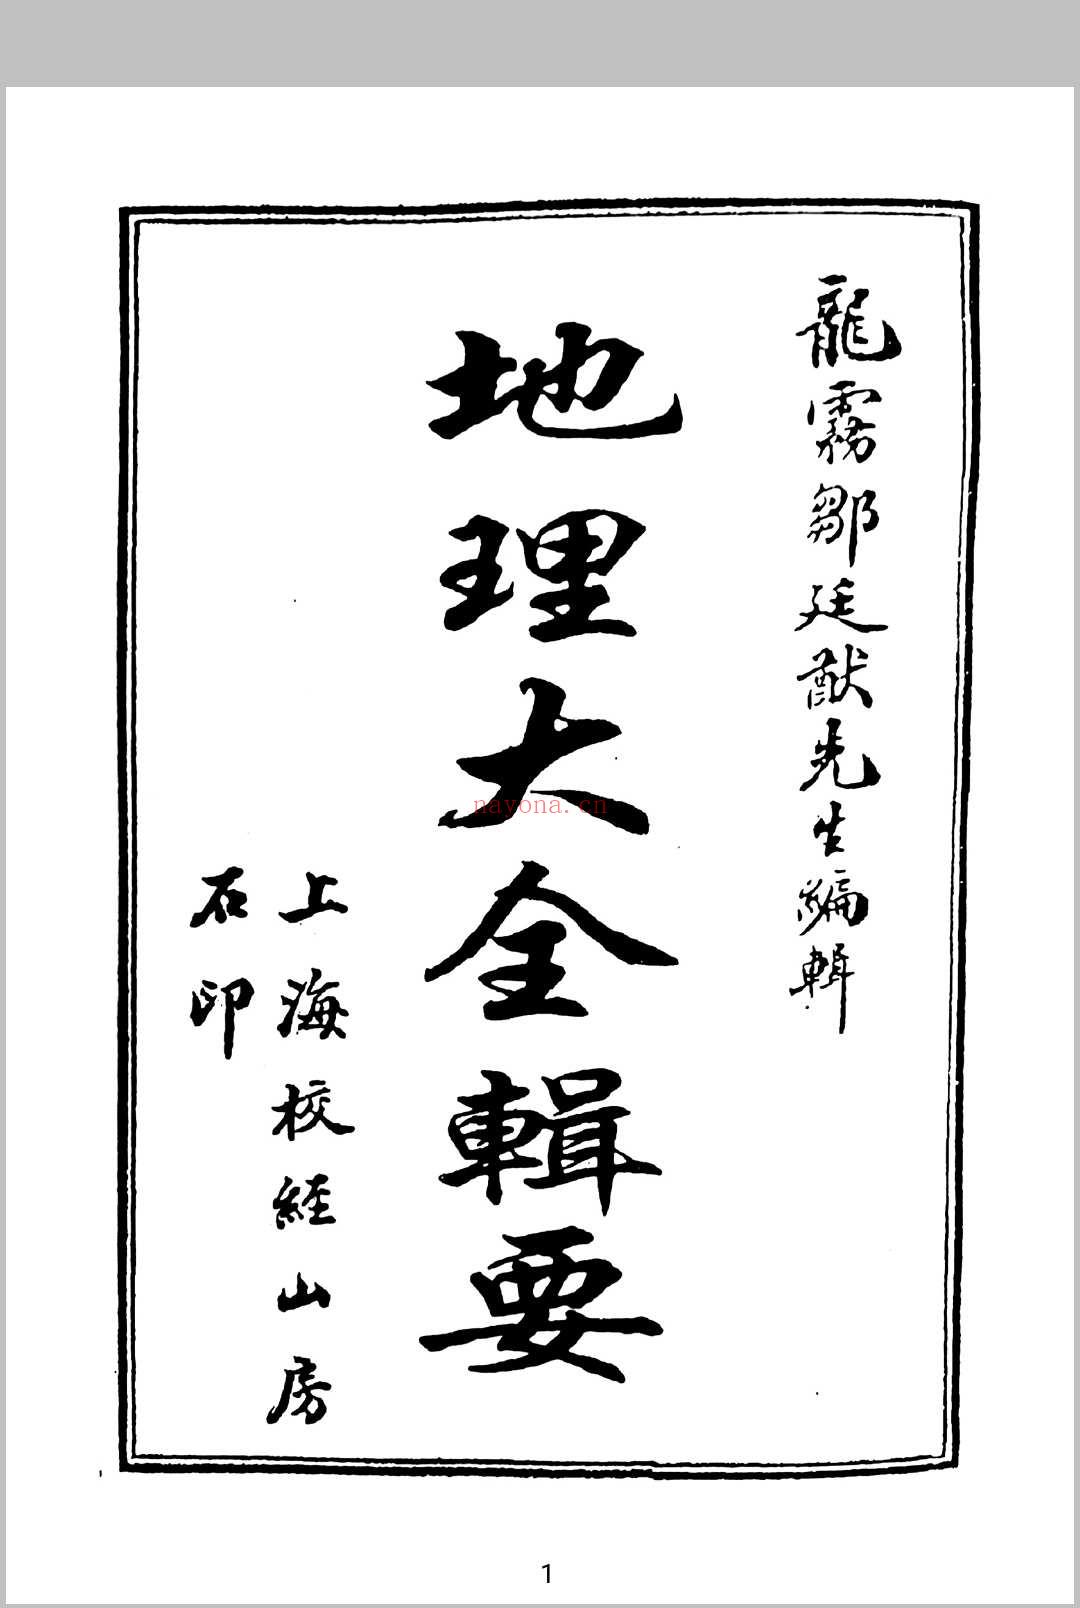 龍霧鄒廷猷先生編輯
地理大全輯要
上海校經山房
石印
nayona.cn
1